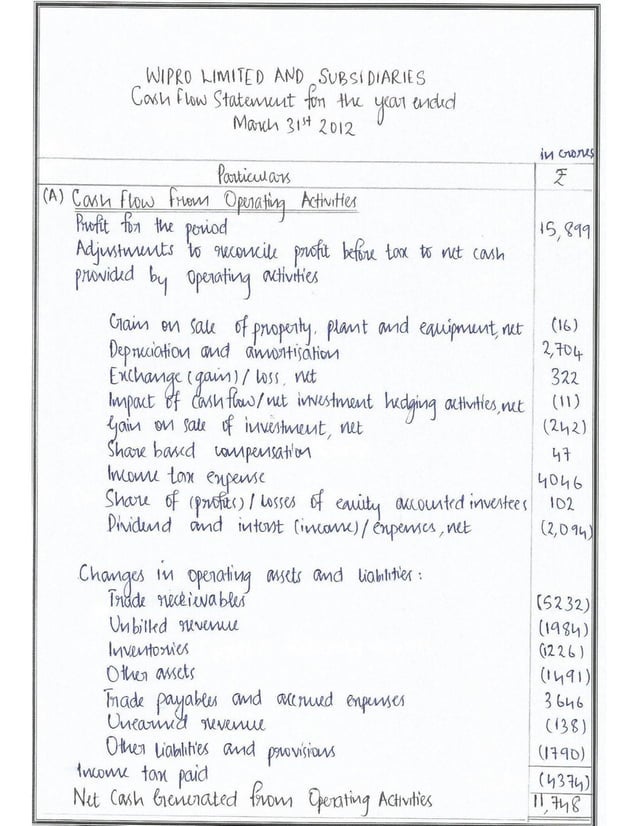 WIPRO LIMITED AND SUBSIDIARIES
Cash Flow Statement for the year ended
March 31st 2012
in crores
Particulars ₹
(A) Cash Flow From Operating Activities
Profit for the period 15,899
Adjustments to reconcile profit before tax to net cash
provided by operating activities
Gain on sale of property, plant and equipment, net (16)
Depreciation and amortisation 2,704
Exchange (gain) / loss, net 322
Impact of cash flow / net investment hedging activities, net (11)
Gain on sale of investment, net (242)
Share based compensation 47
Income tax expense 4046
Share of (profits) / losses of equity accounted investees 102
Dividend and interst (income) / expenses, net (2,094)
Changes in operating assets and liabilities :
Trade recievables (5232)
Unbilled revenue (1984)
Inventories (1226)
Other assets (1491)
Trade payables and accrued expenses 3646
Unearned revenue (138)
Other liabilities and provisions (1790)
Income tax paid (4374)
Net Cash Generated from Operating Activities 11,748